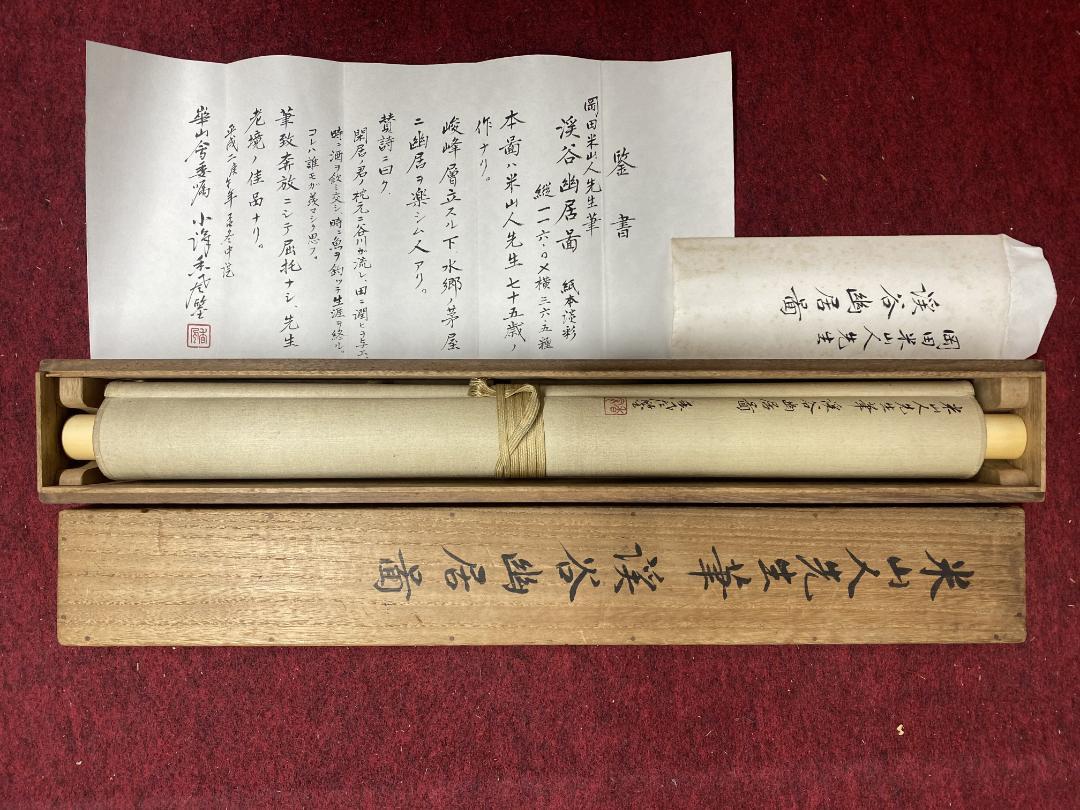 鑒書
岡田米山人先生筆
渓谷幽居啚 紙本淡彩
縦一一六.〇×横三六.五糎
本啚ハ米山人先生七十五歳ノ
作ナリ。
峻峰層立スル下水郷ノ茅屋
ニ幽居ヲ楽シム人アリ。
賛詩ニ曰ク
閑居ノ君ノ枕元ニ谷川が流レ、田ニ潤ヒヲ与エ、
時ニ酒ヲ飲ミ交シ、時ニ魚ヲ釣ッテ生涯ヲ終ル。
コレハ誰モガ羨マシク思フ。
筆致奔放ニシテ屈托ナシ、先生
老境ノ佳品ナリ。
平成二庚午年
崋山會委嘱 小澤禾風鑒
岡田米山人先生
渓谷幽居啚
米山人先生筆 渓谷幽居啚
米山人先生筆渓谷幽居啚